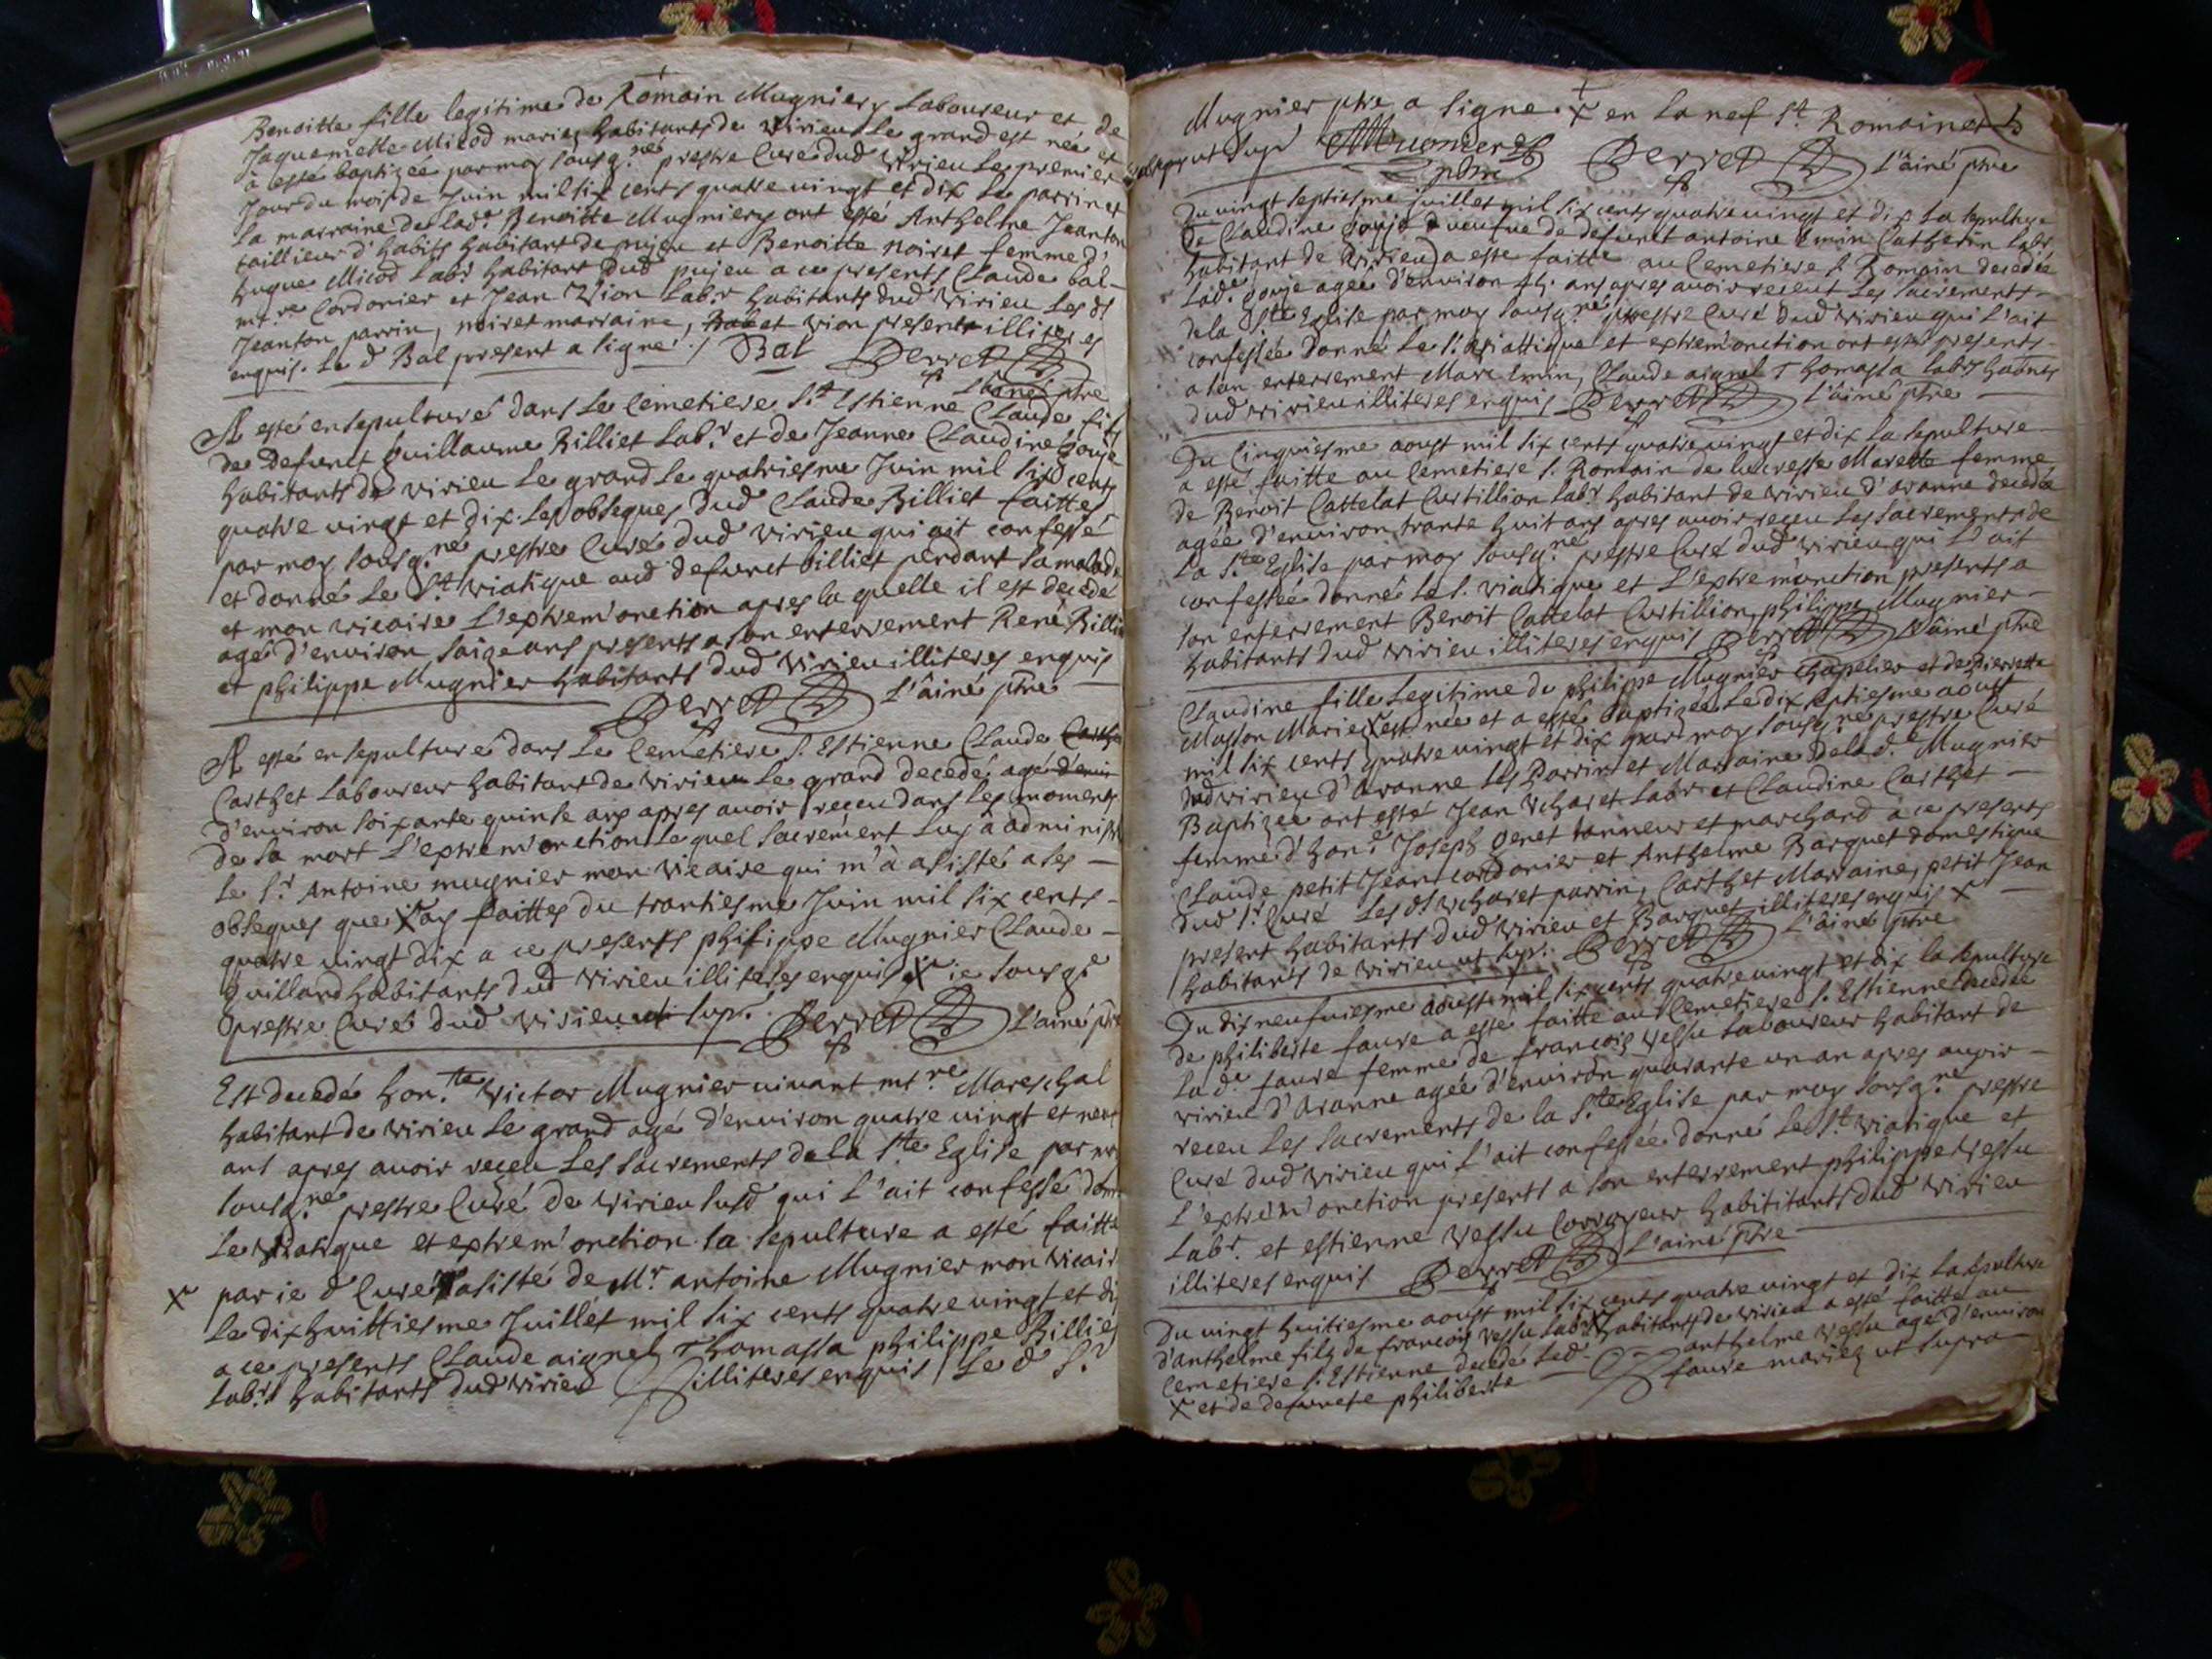 Benoitte fille legitime de Romain Mugniery Laboureur et de
Jaquemette Micod mariez habitants de Virieu le grand est née et
à esté baptizée par moy sousg.né prestre Curé dud Virieu le premier
Jour du mois de Juin mil six cents quatre vingt et dix Le parrin et
la marraine de lad.e Benoitte Mugniery ont esté Anthelme Jeanton
taillieur d'habits habitant de pujeu et Benoitte noiret femme d'
hugue Micod Lab.r habitant dud pujeu a ce presents Claude bal
m.re Cordonier et Jean Vion Lab.r habitants dud Virieu Les ds
Jeanton parrin, noiret marraine, et Vion present illiteres
enquis. Le d Bal present a signé ./ Bal Perret
L'âiné ptre
A esté ensepulturé dans le Cemetiere S.t Estienne Claude fils
de Defunct Guillaume Billiet Lab.r et de Jeanne Claudine Gouje
habitants de Virieu Le grand Le quatriesme Juin mil six cents
quatre vingt et dix. Les obseques dud Claude Billiet faittes
par moy sousg.né prestre Curé dud Virieu qui ait confessé
et donné Le S.t Viatique aud defunct billiet pendant sa malad
et mon vicaire L'extrem'onction apres la quelle il est decedé
agé d'environ saize ans presents a son enterrement René Billi
et philippe Mugnier habitants dud Virieu illiteres enquis
Perret L'âiné ptre
A esté ensepulturé dans Le Cemetiere S. Estienne Claude
Carthet Laboureur habitant de Virieu Le grand decedé agé
d'environ soixante quinse ans apres avoir receu dans Les moments
de sa mort L'extrem'onction Lequel sacrement Luy à administ
Le S.r Antoine mugnier mon vicaire qui m'à asisté a ses
obseques que J'ay faittes du trantiesme Juin mil six cents
quatre vingt dix a ce presents philippe Mugnier Claude
Guilland habitants dud Virieu illiteres enquis X ie sousg.e
prestre Curé dud Virieu ut sup. Perret L'aîné ptre
Est decedé hon.te Victor Mugnier vivant m.re Mareschal
habitant de Virieu Le grand agé d'environ quatre vingt et neuf
ans apres avoir receu Les sacrements de la S.te Eglise par moy
sousg.né prestre Curé de Virieu susd qui L'ait confessé donn
Le Viatique et extrem'onction. la sepulture a esté faitte
X par ie d Curé asisté de M.r antoine Mugnier mon vicair
Le dix huittiesme Juillet mil six cents quatre vingt et di
a ce presents Claude aignel Thomassa philippe Billiet
Lab.rs habitants dud Virieu illiteres enquis / Le d S.r
Mugnier ptre a signé. X en La nef S.t Romain et
ut supr Mugnier ptre Perret L'âiné ptre
Du vingt septiesme Juillet mil six cents quatre vingt et dix La sepulture
de Claudine Gouje veufve de defunct antoine Emin Catherin Lab.r
habitant de Virieu a esté faitte au Cemetiere S. Romain decedée
Lad.e Gouje agée d'environ 45. ans apres avoir receut Les sacrements
de la S.te Eglise par moy sousg.né prestre Curé dud Virieu qui L'ait
confessée donné Le S. Viattique et extrem'onction ont esté presents
a son enterrement Marc Emin, Claude aignel Thomassa Lab.rs
dud Virieu illiteres enquis Perret L'âiné ptre
Du Cinquiesme aoust mil six cents quatre vingt et dix La sepulture
a esté faitte au Cemetiere S. Romain de lucresse Marette femme
de Benoit Cattelat Curtillion Lab.r habitant de Virieu d'Avanne decedée
agée d'environ trante huit ans apres avoir receu Les sacrements de
La S.te Eglise par moy sousg.né prestre Curé dud Virieu qui L'ait
confessée donné Le S. Viatique et L'extrem'onction presents a
son enterrement Benoit Cattelat Curtillion, philippe Mugnier
habitants dud Virieu illiteres enquis Perret L'âiné ptre
Claudine fille Legitime de philippe Mugnier Chapelier et de pierrette
Masson Mariez est née et a esté baptizée Le dix septiesme aoust
mil six cents quatre vingt et dix par moy sousg.né prestre Curé
dud Virieu d'Avanne Les Parrin et Marraine de lad.e Mugnier
Baptizée ont esté Jean Lab.r et Claudine Carthet
femme d'hon.e Joseph Genet tanneur et marchand a ce presents
Claude petit Jean cordonier et Anthelme Barquet domestique
dud S.r Curé Les ds parrin, Carthet Marraine, petit Jean
present habitants dud Virieu et Barquet illiteres enquis X
habitants de Virieu ut sup. Perret L'âiné ptre
Du dix neufuiesme aoust mil six cents quatre vingt et dix la sepulture
de philiberte faure a esté faitte au Cemetiere S. Estienne decedée
La d.e faure femme de francois Vessu Laboureur habitant de
Virieu d'Avanne agée d'environ quarante un an apres avoir
receu Les sacrements de la S.te Eglise par moy sousg.né prestre
Curé dud Virieu qui L'ait confessée donné Le S.t Viatique et
L'extrem'onction presents a son enterrement philippe Vessu
Lab.r et estienne Vessu Corroyeur habititants dud Virieu
illiteres enquis Perret L'aîné ptre
Du vingt huitiesme aoust mil six cents quatre vingt et dix La sepulture
d'anthelme filz de francois Vessu Lab.r X habitants de Virieu a esté faitte au
Cemetiere S. Estienne decedé Led. anthelme Vessu agé d'environ
X et de defuncte philiberte faure mariez ut supra